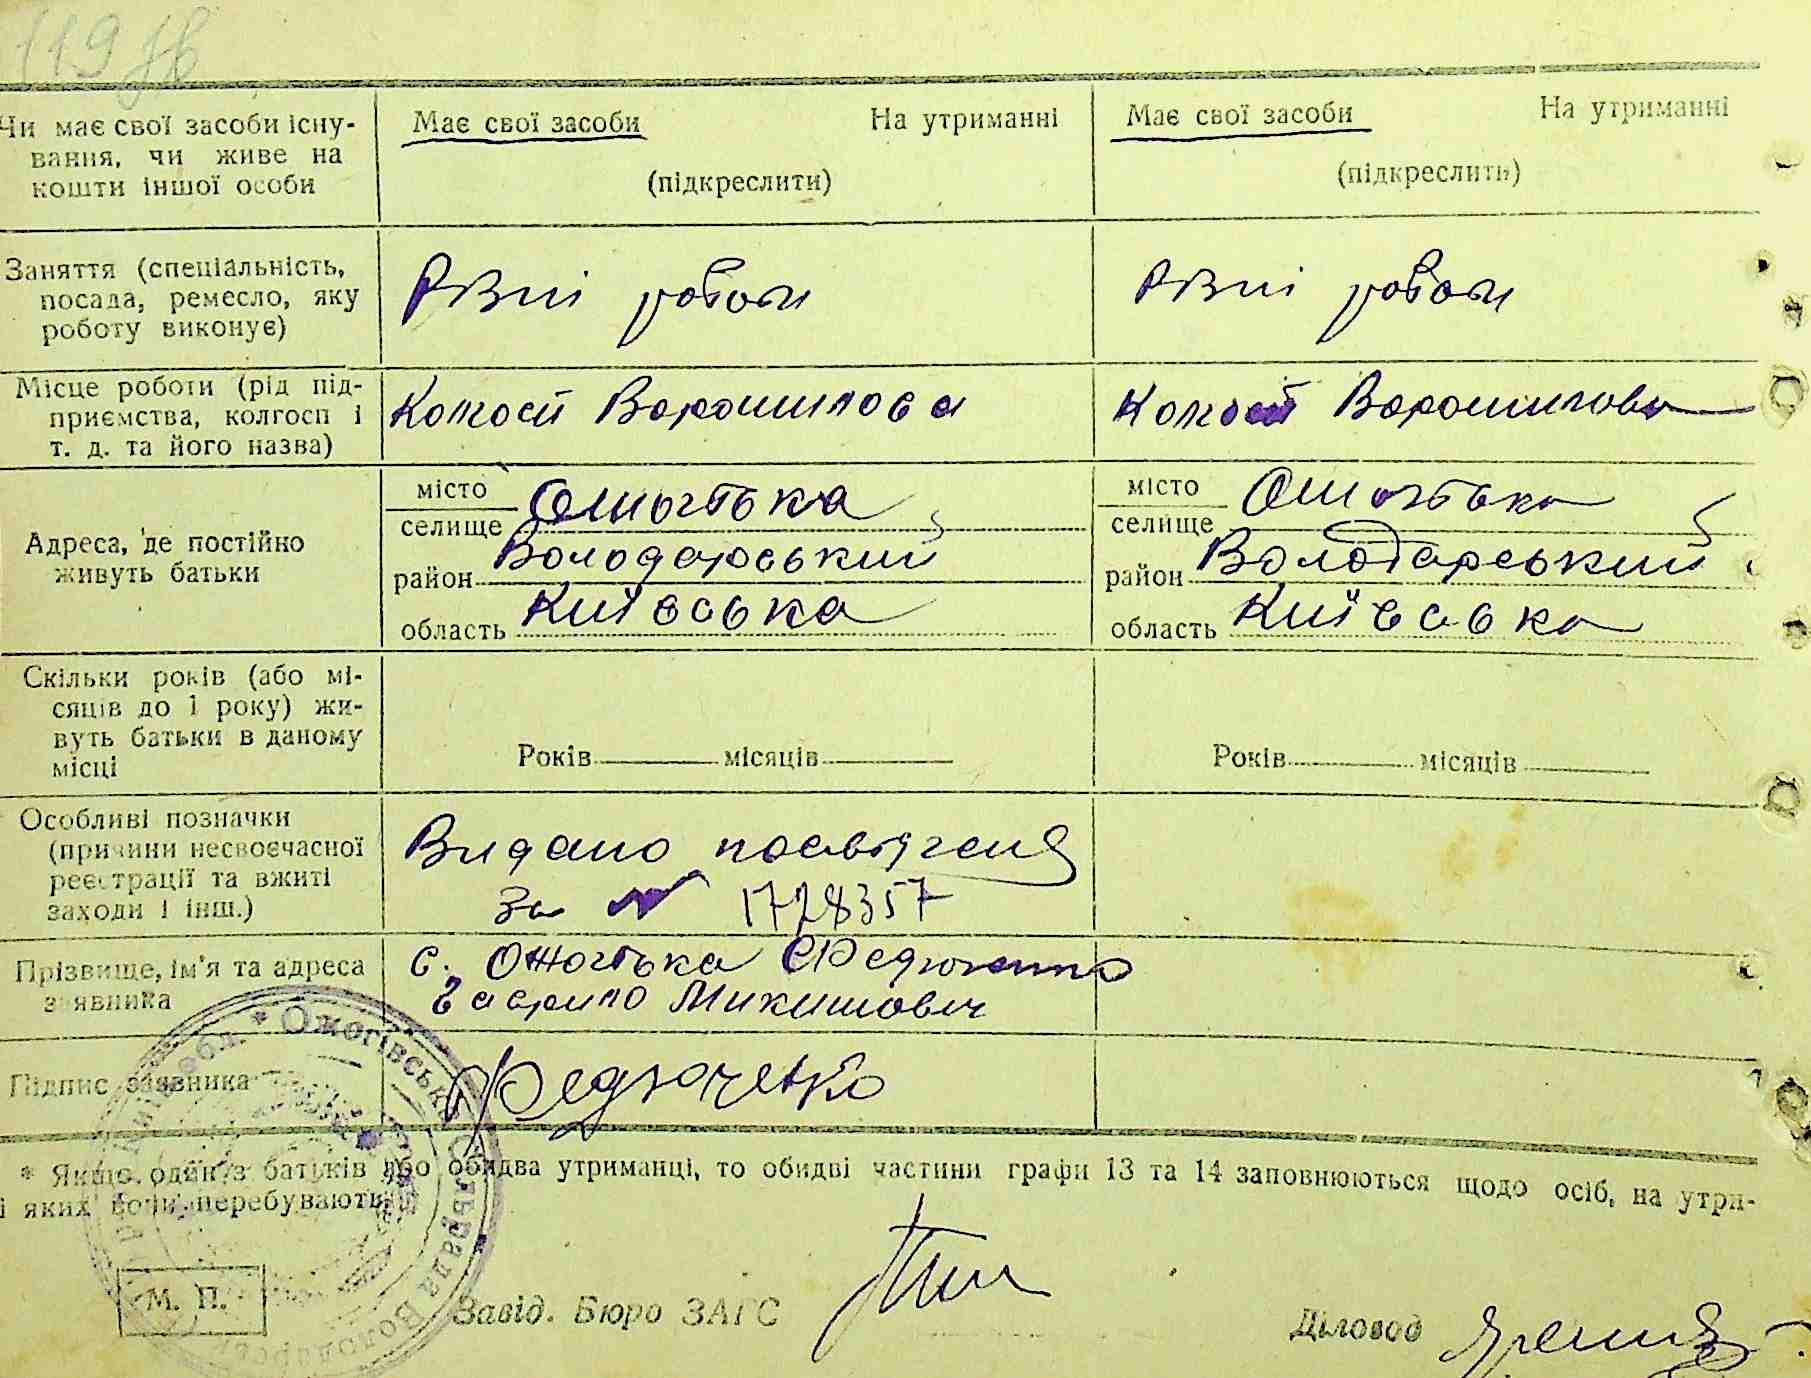 119 зв
Чи має свої засоби існу-
вання, чи живе на
кошти іншої особи
Має свої засоби На утриманні
(підкреслити)
Має свої засоби На утриманні
(підкреслити)
Заняття (спеціальність,
посада, ремесло, яку
роботу виконує)
Різні роботи
Різні роботи
Місце роботи (рід під-
приємства, колгосп і
т. д. та його назва)
Колгосп Ворошилова
Колгосп Ворошилова
Адреса, де постійно
живуть батьки
місто
селище Ожогівка
район Володарський
область Київська
місто
селище Ожогівка
район Володарський
область Київська
Скільки років (або мі-
сяців до 1 року) жи-
вуть батьки в даному
місці
Років місяців
Років місяців
Особливі позначки
(причини несвоєчасної
реєстрації та вжиті
заходи і інш.)
Видано посвідченя
за № 1728357
Прізвище, ім'я та адреса
заявника
с. Ожогівка Федюченко
Гаврило Микитович
Підпис заявника
Федюченко
* Якщо один з батьків або обидва утриманці, то обидві частини графи 13 та 14 заповнюються щодо осіб, на утри-
і яких вони перебувають.
Ожогівська сільрада Володарськ
М. П.
Завід. Бюро ЗАГС
Діловод